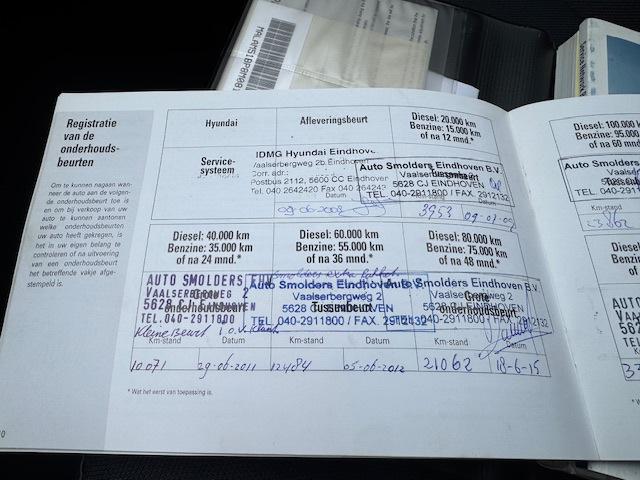 MALAM51BP8M0
Registratie
van de
onderhouds-
beurten
Om te kunnen nagaan wan-
neer de auto aan de volgen-
de onderhoudsbeurt toe is
en om bij verkoop van uw
auto te kunnen aantonen
welke onderhoudsbeurten
uw auto heeft gekregen, is
het in uw eigen belang te
controleren of na uitvoering
van een onderhoudsbeurt
het betreffende vakje afge-
stempeld is.
Hyundai
Afleveringsbeurt
Diesel: 20.000 km
Benzine: 15.000 km
of na 12 mnd.*
Service-
systeem
IDMG Hyundai Eindhoven
Vaalserbergweg 2b, Eindhoven
Corr. adr.:
Postbus 2112, 5600 CC Eindhoven
Tel. 040 2642420 Fax 040 26424
Datum
09-06-2008
Auto Smolders Eindhoven B.V.
Vaalserbergweg 2
5628 CJ EINDHOVEN
TEL. 040-2911800 / FAX. 2912132
Km-stand Datum
3953 09-07-09
Diesel: 40.000 km
Benzine: 35.000 km
of na 24 mnd.*
Diesel: 60.000 km
Benzine: 55.000 km
of na 36 mnd.*
Diesel: 80.000 km
Benzine: 75.000 km
of na 48 mnd.*
AUTO SMOLDERS EHV
VAALSERBERGWEG 2
5628 CJ EINDHOVEN
TEL. 040-2911800
Grote
onderhoudsbeurt
Kleine Beurt i.o.v. Klant
Km-stand Datum
10.071 29-06-2011
Smolders extra
Auto Smolders Eindhoven B.V.
Vaalserbergweg 2
5628 CJ EINDHOVEN
TEL. 040-2911800 / FAX. 2912132
Tussenbeurt
Km-stand Datum
12484 05-06-2012
Auto Smolders Eindhoven B.V.
Vaalserbergweg 2
5628 CJ EINDHOVEN
TEL. 040-2911800 / FAX. 2912132
Grote
onderhoudsbeurt
Km-stand Datum
21062 18-6-15
* Wat het eerst van toepassing is.
Diesel: 100.000
Benzine: 95.000
of na 60 mnd
Auto Smolders
Vaals
5628 CJ
TEL. 040-291
Km-stand
Diesel:
Benzine:
of na